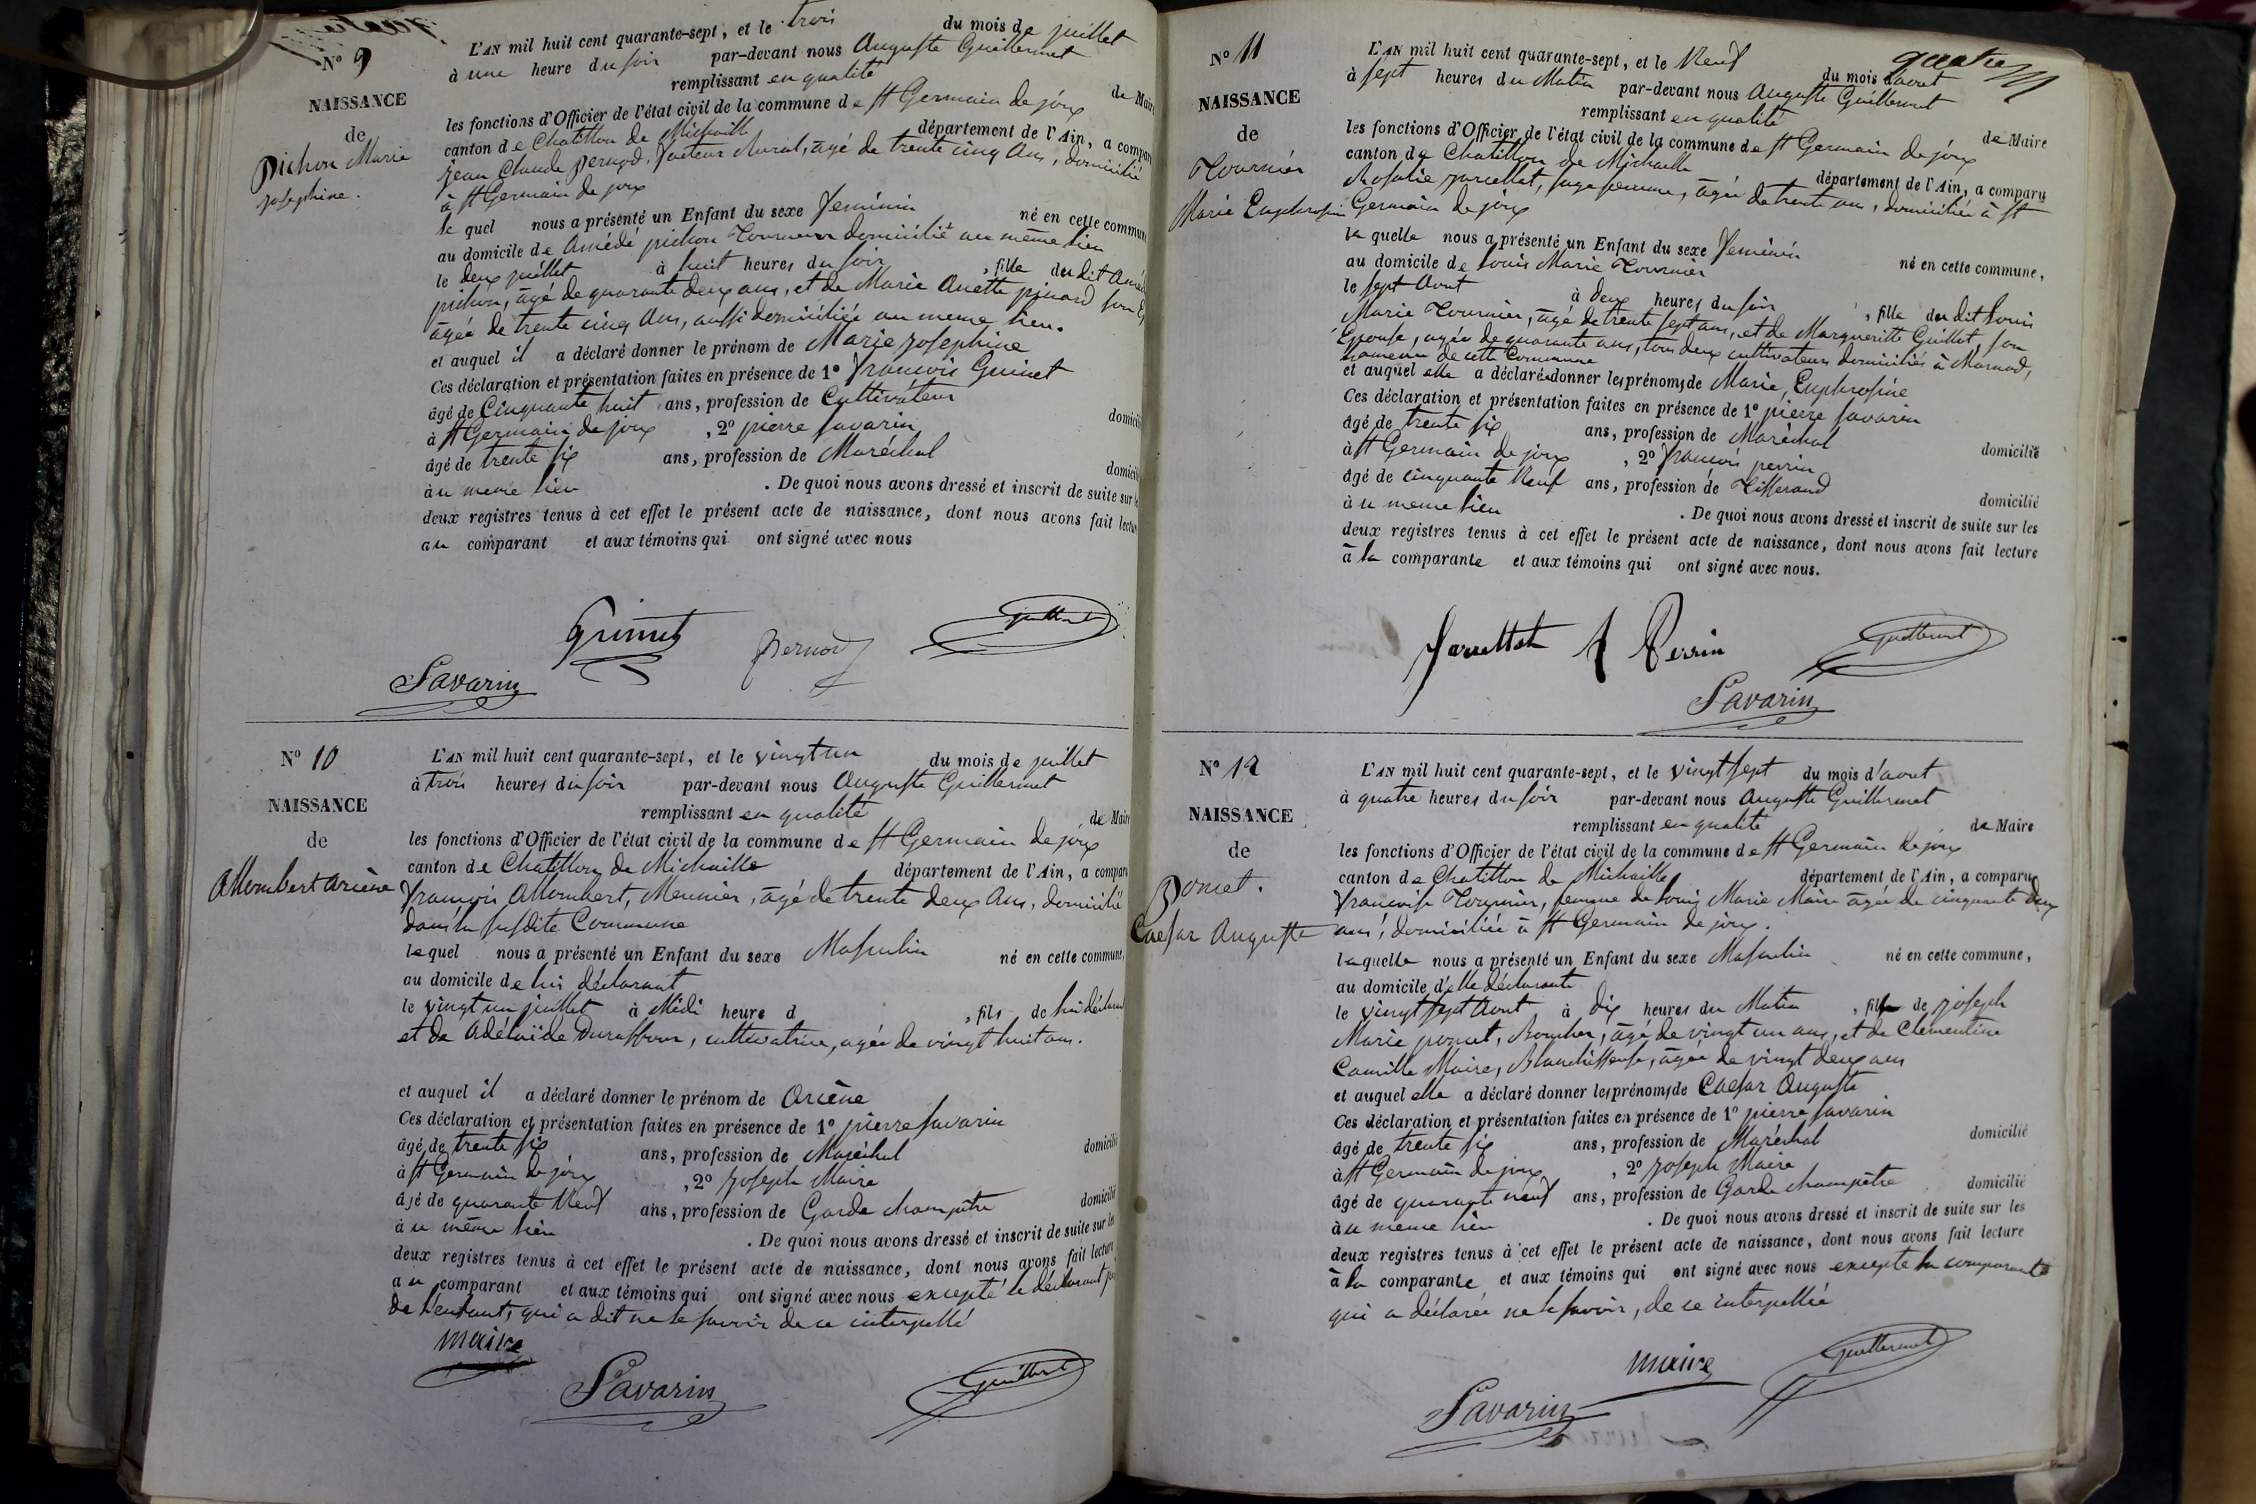 N° 9
NAISSANCE
de
Pichon Marie
josephine.
L'AN mil huit cent quarante-sept, et le trois du mois de juillet
à une heure du soir par-devant nous Auguste Guillermet
remplissant en qualité de Maire
les fonctions d'Officier de l'état civil de la commune de St Germain de joux
canton de Chatillon de Michaille département de l'Ain, a compar
jean Claude pernod, facteur Rural, âgé de trente cinq Ans, domicilié
à St Germain de joux
le quel nous a présenté un Enfant du sexe feminin né en cette commune
au domicile de Amédé pichon Tourneur domicilié au même lieu
le deux juillet à huit heures du soir, fille du dit Amé
pichon, âgé de quarante deux ans, et de Marie Anette pinard son E
âgée de trente cinq Ans, aussi domiciliée au meme lieu.
et auquel il a déclaré donner le prénom de Marie josephine
Ces déclaration et présentation faites en présence de 1° francois Guinet
âgé de Cinquante huit ans, profession de Cultivateur domicil
à St Germain de joux, 2° pierre savarin
âgé de trente six ans, profession de Maréchal domicil
au meme lieu. De quoi nous avons dressé et inscrit de suite sur le
deux registres tenus à cet effet le présent acte de naissance, dont nous avons fait lectur
au comparant et aux témoins qui ont signé avec nous
Guinet
pernod
Guillermet
Savarin
N° 10
NAISSANCE
de
Allombert Arsène
L'AN mil huit cent quarante-sept, et le vingt un du mois de juillet
à trois heures du soir par-devant nous Auguste Guillermet
remplissant en qualité de Maire
les fonctions d'Officier de l'état civil de la commune de St Germain de joux
canton de Chatillon de Michaille département de l'Ain, a compar
françois Allombert, Meunier, âgé de trente deux Ans, domicilié
dans la susdite Commune
lequel nous a présenté un Enfant du sexe Masculin né en cette commune,
au domicile de lui déclarant
le vingt un juillet à Midi heure d , fils de lui déclarant
et de Adélaïde Duraffour, cultivatrice, agée de vingt huit ans.
et auquel il a déclaré donner le prénom de Arsène
Ces déclaration et présentation faites en présence de 1° pierre savarin
âgé de trente six ans, profession de Maréchal domicilié
à St Germain de joux, 2° joseph Maire
âgé de quarante Neuf ans, profession de Garde champêtre domicilié
au même lieu. De quoi nous avons dressé et inscrit de suite sur les
deux registres tenus à cet effet le présent acte de naissance, dont nous avons fait lecture
au comparant et aux témoins qui ont signé avec nous excepté le déclarant
de l'enfant, qui a dit ne le savoir de ce interpellé
maire
Savarin
Guillermet
quatre
N° 11
NAISSANCE
de
Tournier
Marie Euphrosine
L'AN mil huit cent quarante-sept, et le Neuf du mois d'aout
à sept heures du Matin par-devant nous Auguste Guillermet
remplissant en qualité de Maire
les fonctions d'Officier de l'état civil de la commune de St Germain de joux
canton de Chatillon de Michaille département de l'Ain, a comparu
Rosalie, sage femme, âgée de trente ans, domiciliée à St
Germain de joux
la quelle nous a présenté un Enfant du sexe feminin né en cette commune,
au domicile de Louis Marie Tournier
le sept Aout à deux heures du soir, fille du dit Louis
Marie Tournier, âgé de trente sept ans, et de Marguerite Guillet, son
Epouse, agée de quarante ans, tous deux cultivateurs domiciliés à Marnod,
hameau de cette Commune
et auquel elle a déclaré donner les prénoms de Marie, Euphrosine
Ces déclaration et présentation faites en présence de 1° pierre savarin
âgé de trente six ans, profession de Maréchal domicilié
à St Germain de joux, 2° françois perrin
âgé de cinquante Neuf ans, profession de Tisserand domicilié
au meme lieu. De quoi nous avons dressé et inscrit de suite sur les
deux registres tenus à cet effet le présent acte de naissance, dont nous avons fait lecture
à la comparante et aux témoins qui ont signé avec nous.
f Perrin
Guillermet
Savarin
N° 12
NAISSANCE
de
Poncet.
Caesar Auguste
L'AN mil huit cent quarante-sept, et le vingt sept du mois d'aout
à quatre heures du soir par-devant nous Auguste Guillermet
remplissant en qualité de Maire
les fonctions d'Officier de l'état civil de la commune de St Germain de joux
canton de Chatillon de Michaille département de l'Ain, a comparu
françoise Tournier, femme de Louis Marie Maire âgée de cinquante deux
ans, domiciliée à St Germain de joux.
laquelle nous a présenté un Enfant du sexe Masculin né en cette commune,
au domicile d'elle déclarante
le vingt sept Aout à dix heures du Matin, fils de joseph
Marie poncet, âgé de vingt un ans, et de Clementine
Camille Maire, Blanchisseuse, âgée de vingt deux ans
et auquel elle a déclaré donner les prénoms de Caesar Auguste
Ces déclaration et présentation faites en présence de 1° pierre savarin
âgé de trente six ans, profession de Maréchal domicilié
à St Germain de joux, 2° joseph Maire
âgé de quarante neuf ans, profession de Garde champêtre domicilié
au meme lieu. De quoi nous avons dressé et inscrit de suite sur les
deux registres tenus à cet effet le présent acte de naissance, dont nous avons fait lecture
à la comparante et aux témoins qui ont signé avec nous excepté la comparante
qui a déclarée ne le savoir, de ce interpellée
maire
Guillermet
Savarin